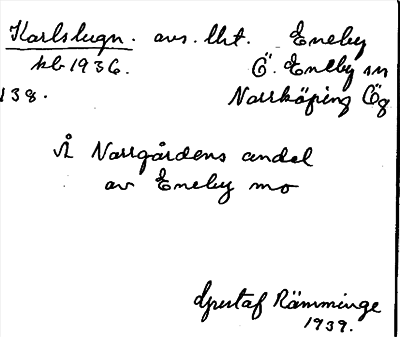 Karlslugn. avs. lht. Eneby
kb 1936. Ö. Eneby sn
138. Norrköping Ög
å Norrgårdens andel
av Eneby mo
Gustaf Rämminge
1939.